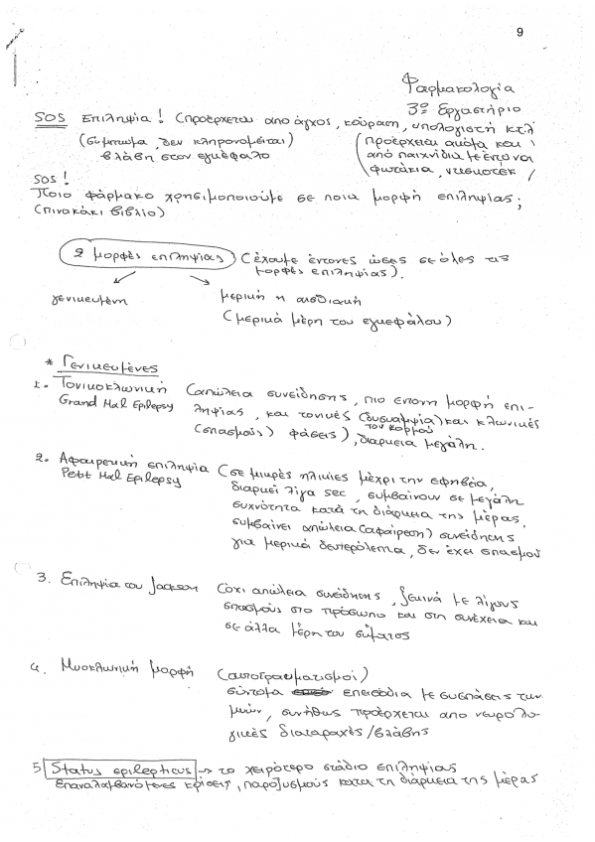 9
Φαρμακολογία
3º Εργαστήριο
SOS Επιληψία! (προέρχεται από άγχος, κούραση, υπολογιστή κτλ
(σύμπτωμα, δεν κληρονομείται) (προέρχεται ακόμα και
βλάβη στον εγκέφαλο από παιχνίδια με έντονα
φωτάκια, ντισκοτέκ)
SOS!
Ποιο φάρμακο χρησιμοποιούμε σε ποια μορφή επιληψίας;
(πινακάκι βιβλίο)
2 μορφές επιληψίας (έχουμε έντονες ώσεις σε όλες τις
μορφές επιληψίας).
γενικευμένη μερική ή εστιακή
(μερικά μέρη του εγκεφάλου)
* Γενικευμένες
1. Τονικοκλωνική (απώλεια συνείδησης, πιο έντονη μορφή επι-
Grand Mal Epilepsy ληψίας, και τονικές (δυσκαμψία) και κλωνικές
του κορμού
(σπασμοί) φάσεις), διάρκεια μεγάλη.
2. Αφαιρετική επιληψία (σε μικρές ηλικίες μέχρι την εφηβεία,
Petit Mal Epilepsy διαρκεί λίγα sec, συμβαίνουν σε μεγάλη
συχνότητα κατά τη διάρκεια της μέρας.
συμβαίνει απώλεια (αφαίρεση) συνείδησης
για μερικά δευτερόλεπτα, δεν έχει σπασμού
3. Επιληψία του Jackson (όχι απώλεια συνείδησης, ξεκινά με λίγους
σπασμούς στο πρόσωπο και στη συνέχεια και
σε άλλα μέρη του σώματος
4. Μυοκλωνική μορφή (αυτοτραυματισμοί)
σύντομα επεισόδια με συσπάσεις των
μυών, συνήθως προέρχεται από νευρολο-
γικές διαταραχές/βλάβης
5. Status epilepticus → το χειρότερο στάδιο επιληψίας
επαναλαμβανόμενες κρίσεις, παροξυσμούς κατά τη διάρκεια της μέρας